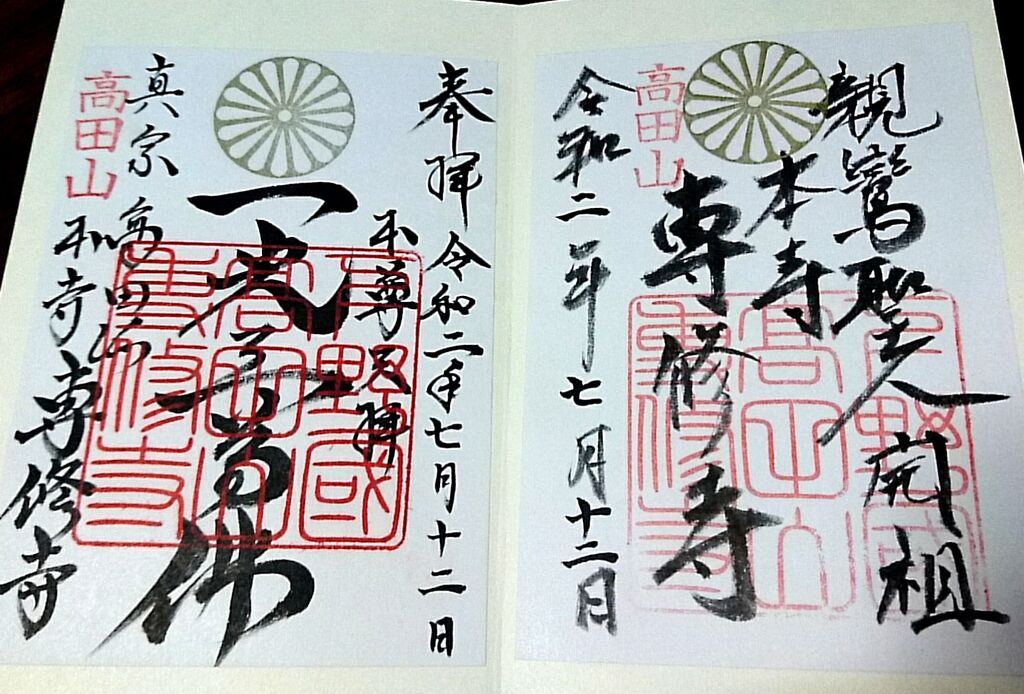 親鸞聖人 開祖
本寺
専修寺
高田山
令和二年七月十二日
下野國
高田山
専修寺
奉拝 令和二年七月十二日
本尊天拝
一光三尊佛
真宗 高田山
本寺 専修寺
高田山
下野國
高田山
専修寺